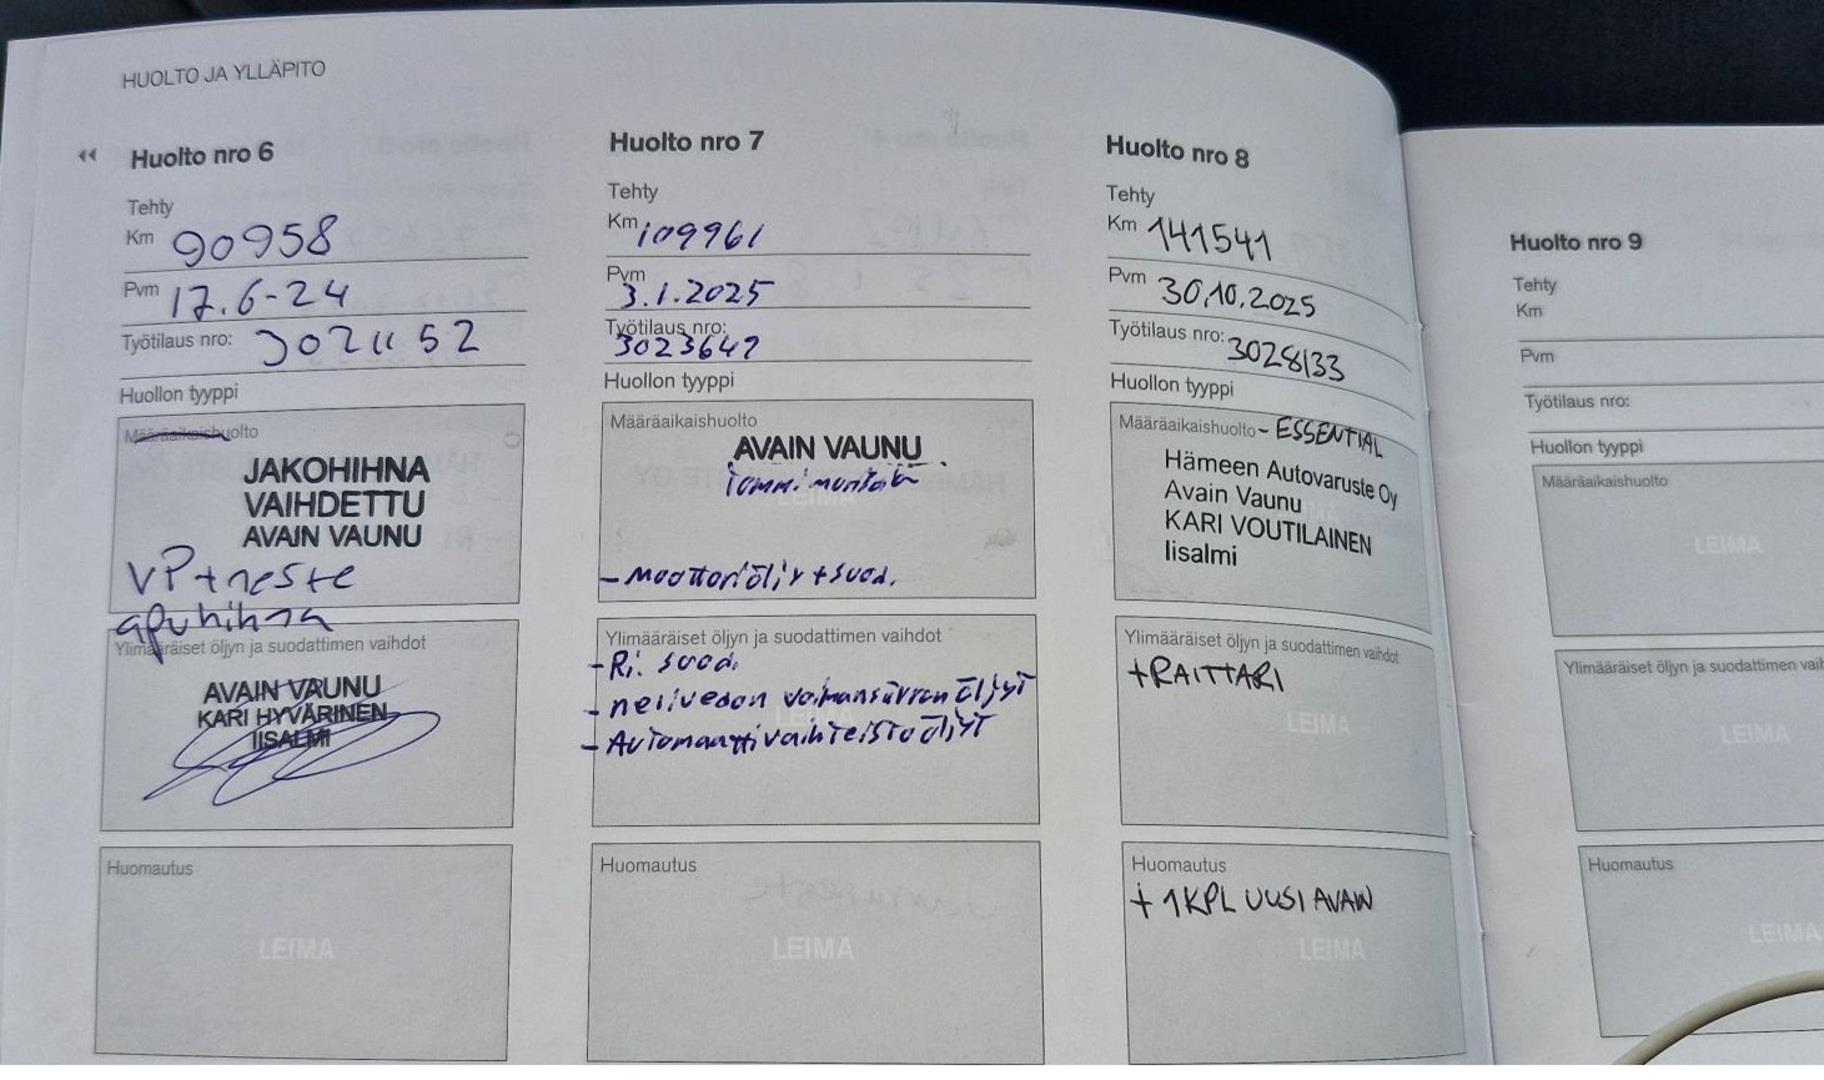 HUOLTO JA YLLÄPITO
Huolto nro 6
Tehty
Km 90958
Pvm 17.6-24
Työtilaus nro: 3021152
Huollon tyyppi
Määräaikaishuolto
JAKOHIHNA
VAIHDETTU
AVAIN VAUNU
VP+neste
apuhihna
Ylimääräiset öljyn ja suodattimen vaihdot
AVAIN VAUNU
KARI HYVÄRINEN
IISALMI
Huomautus
LEIMA
Huolto nro 7
Tehty
Km 109961
Pvm 3.1.2025
Työtilaus nro: 3023647
Huollon tyyppi
Määräaikaishuolto
AVAIN VAUNU
LEIMA
- Moottoriöljy + suod.
Ylimääräiset öljyn ja suodattimen vaihdot
- Ri. suod.
- nelivedon voimansiirron öljyt
- Automaattivaihteistoöljyt
LEIMA
Huomautus
LEIMA
Huolto nro 8
Tehty
Km 141541
Pvm 30.10.2025
Työtilaus nro: 3028133
Huollon tyyppi
Määräaikaishuolto - ESSENTIAL
Hämeen Autovaruste Oy
Avain Vaunu
KARI VOUTILAINEN
Iisalmi
Ylimääräiset öljyn ja suodattimen vaihdot
+RAITTARI
LEIMA
Huomautus
+ 1KPL UUSI AVAIN
LEIMA
Huolto nro 9
Tehty
Km
Pvm
Työtilaus nro:
Huollon tyyppi
Määräaikaishuolto
LEIMA
Ylimääräiset öljyn ja suodattimen vaih
LEIMA
Huomautus
LEIMA